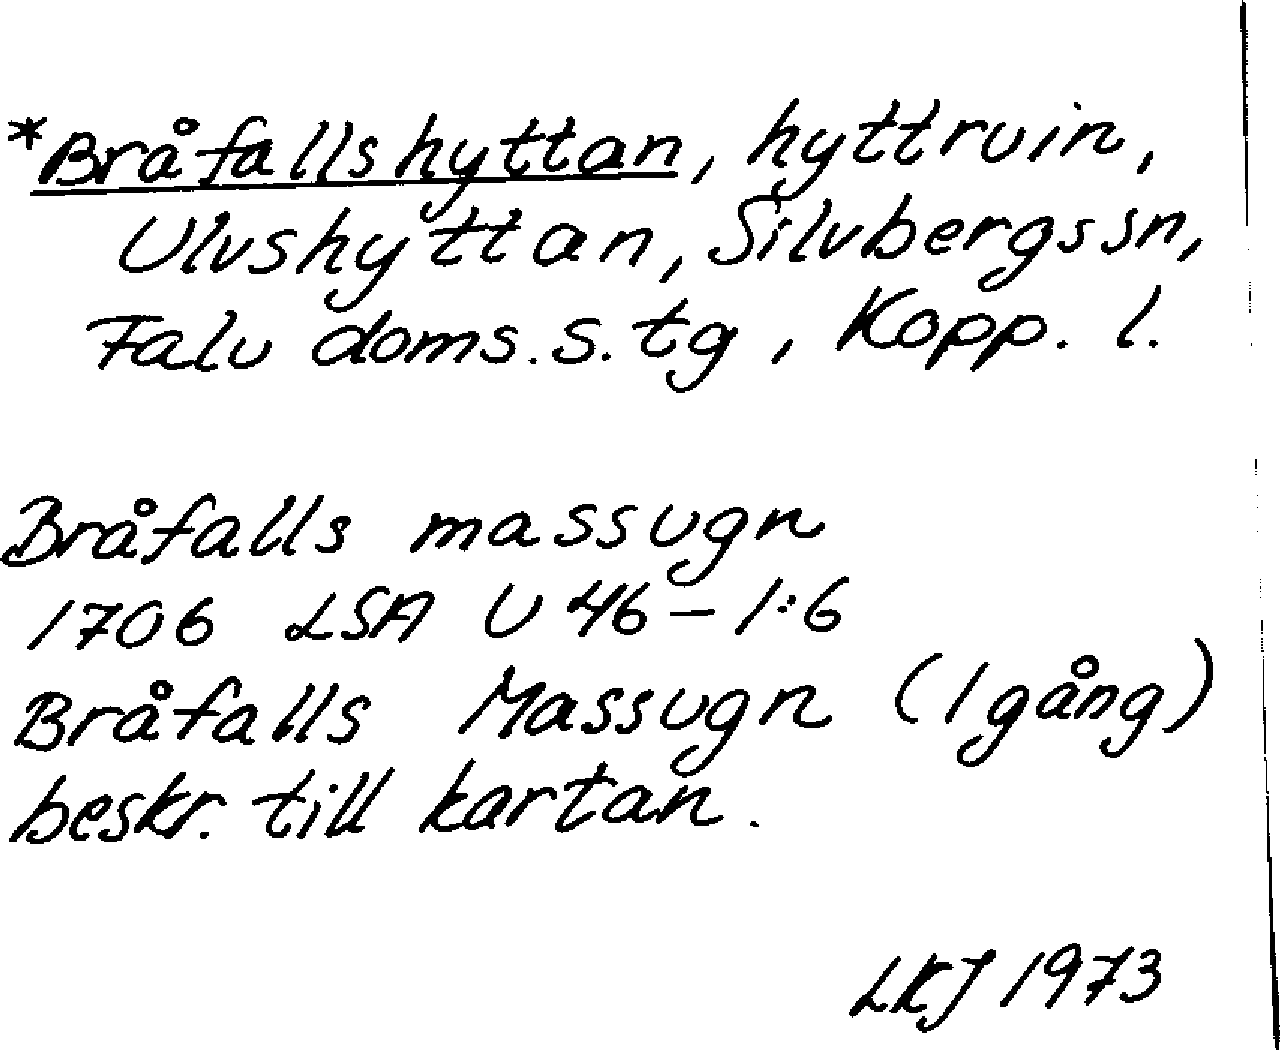 *Bråfallshyttan, hyttruin,
Ulvshyttan, Silvbergs sn,
Falu doms. s. tg, Kopp. l.
Bråfalls massugn
1706 LSA U 46-1:6
Bråfalls Massugn (1 gång)
beskr. till kartan.
LKJ 1973